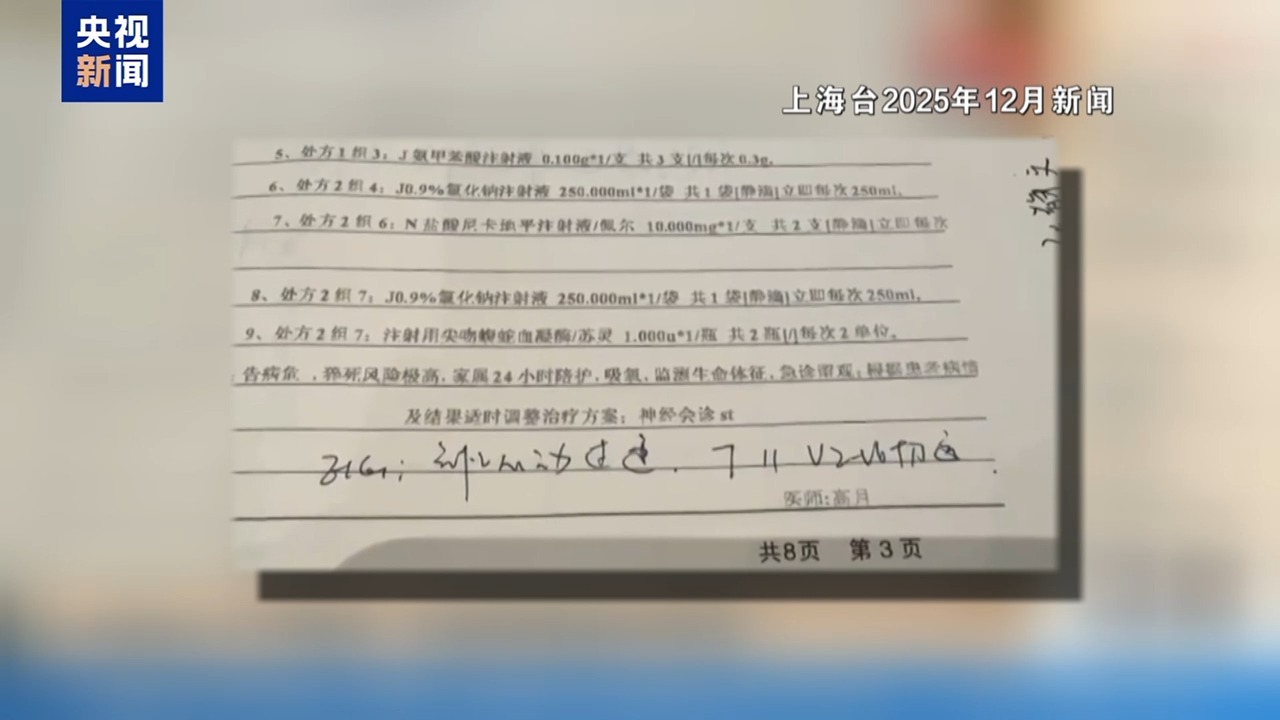 央视
新闻
上海台2025年12月新闻
5、处方1组3：J氨甲苯酸注射液 0.100g*1/支 共3支[/]每次0.3g。
6、处方2组4：J0.9%氯化钠注射液 250.000ml*1/袋 共1袋[静滴]立即每次250ml。
7、处方2组6：N盐酸尼卡地平注射液/佩尔 10.000mg*1/支 共2支[静滴]立即每次
8、处方2组7：J0.9%氯化钠注射液 250.000ml*1/袋 共1袋[静滴]立即每次250ml。
9、处方2组7：注射用尖吻蝮蛇血凝酶/苏灵 1.000u*1/瓶 共2瓶[/]每次2单位。
：告病危，猝死风险极高，家属24小时陪护，吸氧，监测生命体征，急诊留观；根据患者病情
及结果适时调整治疗方案；神经会诊st
医师：高月
共8页 第3页